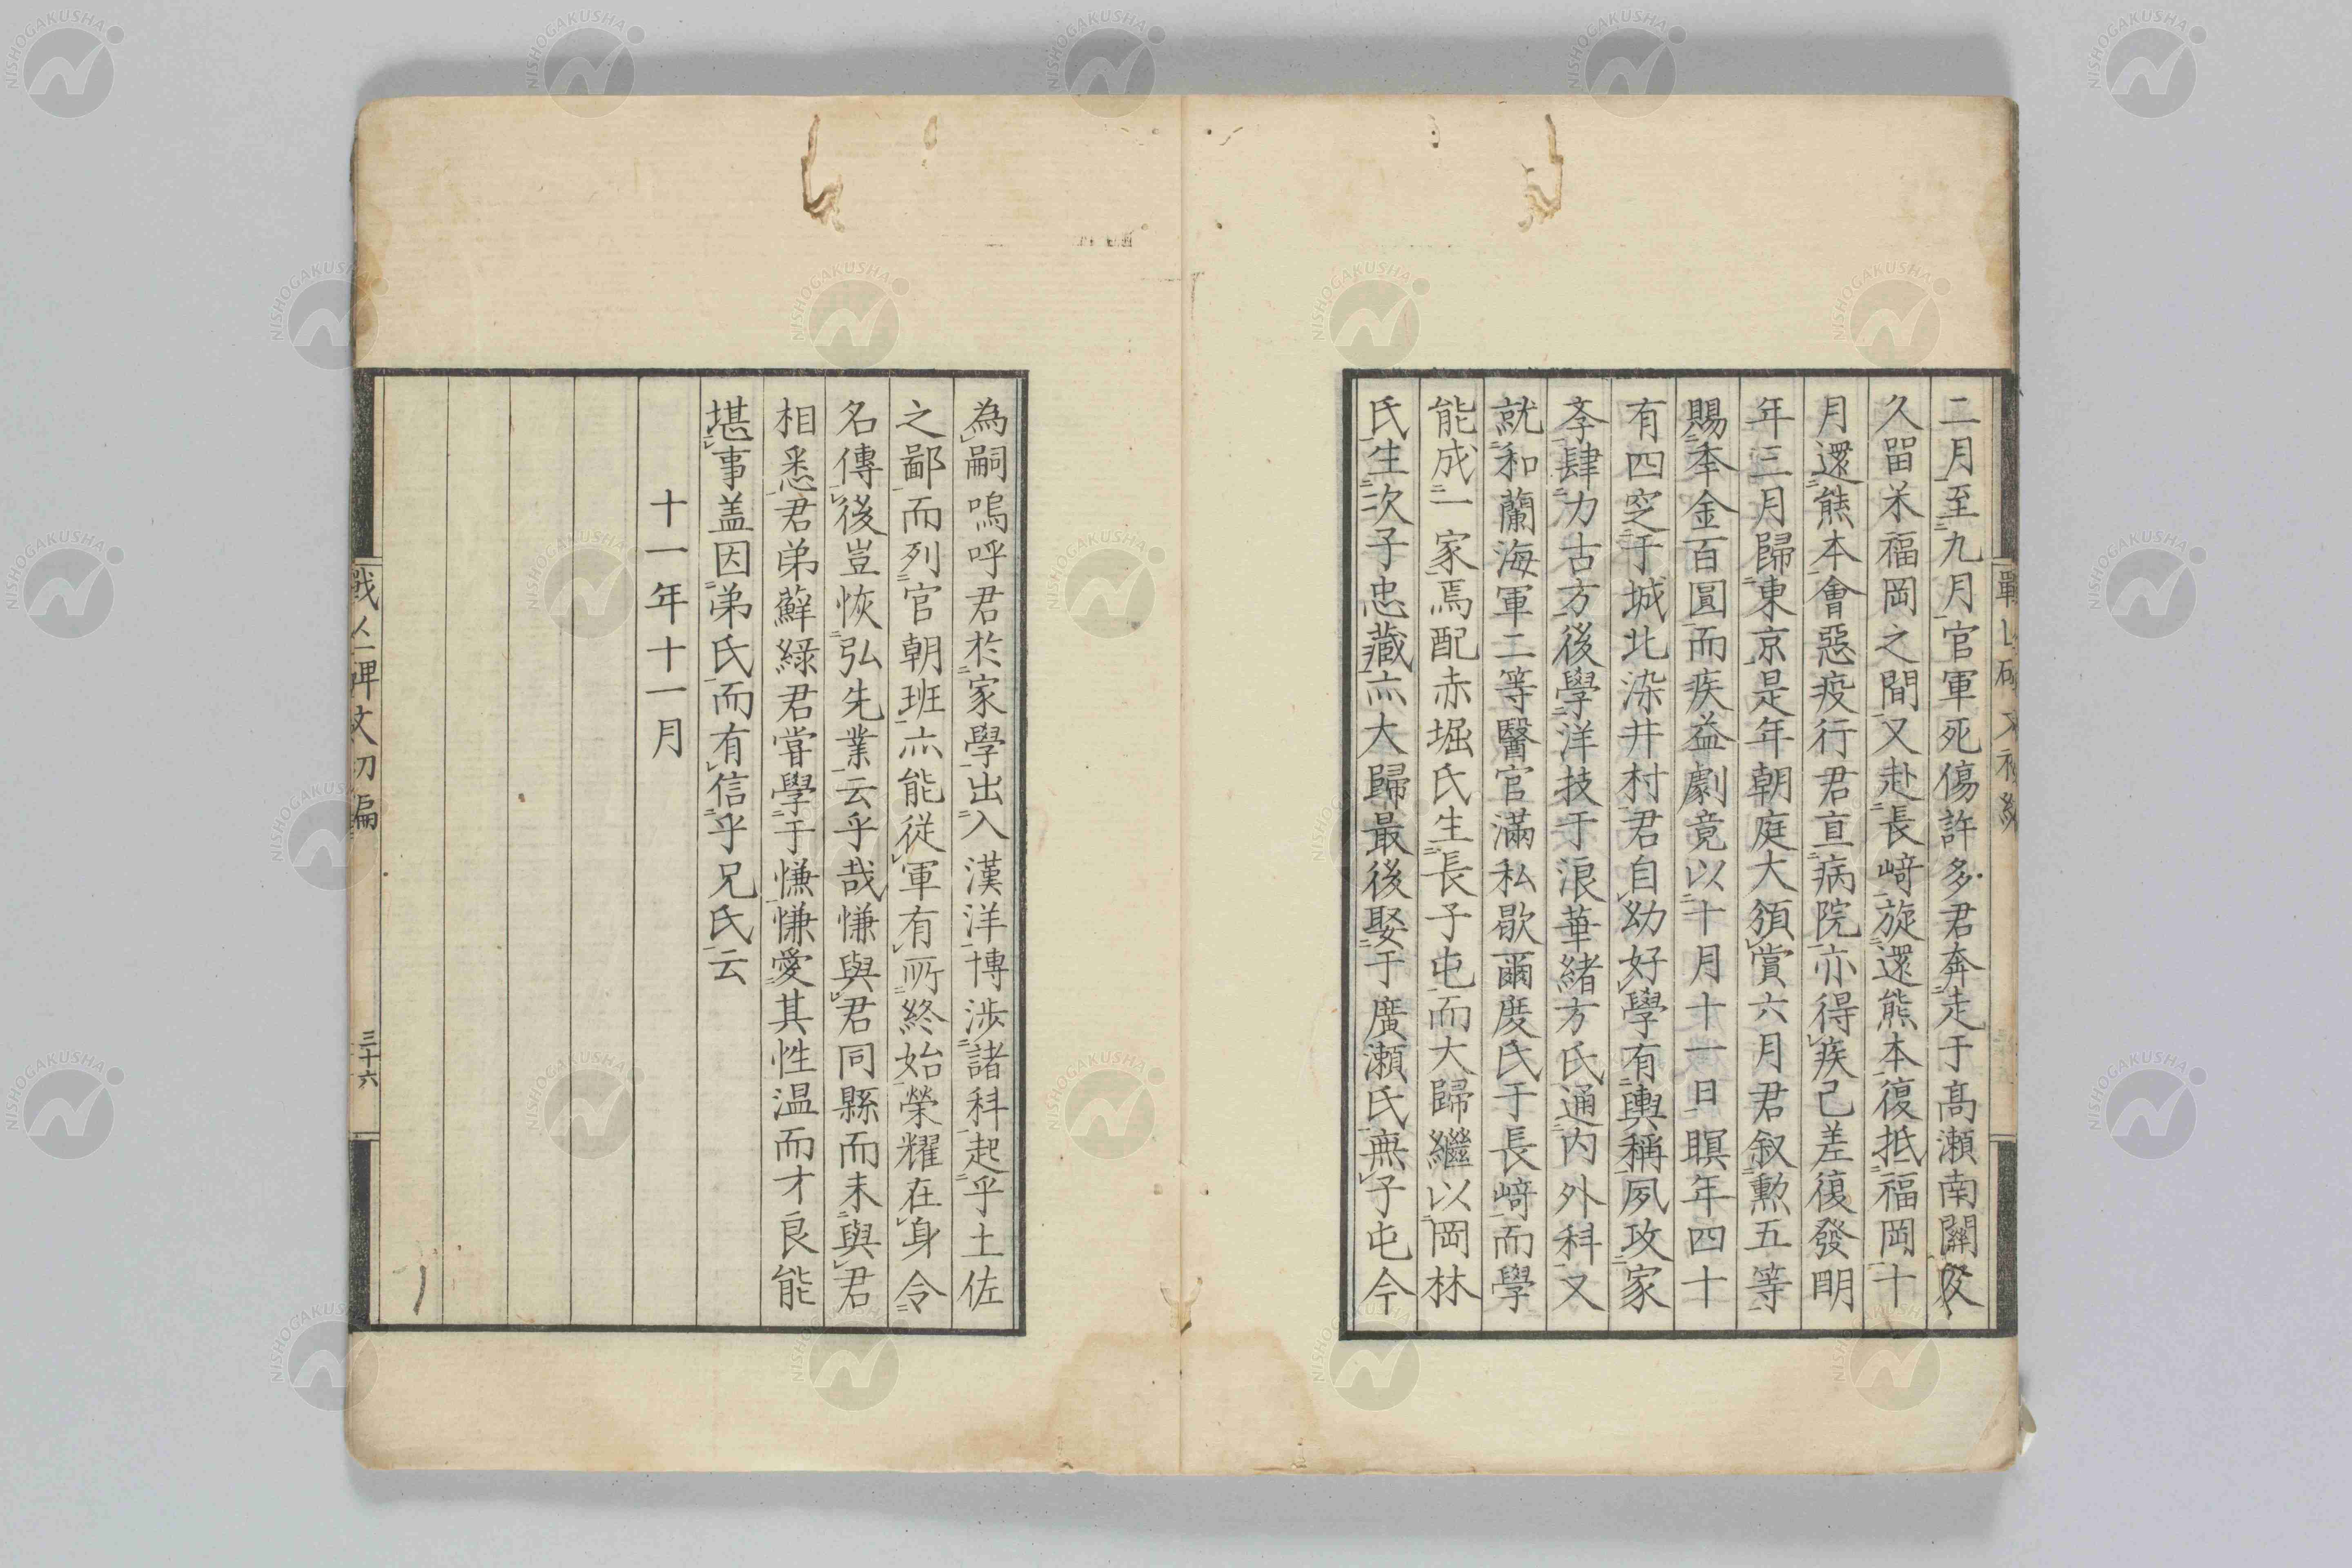 二月至九月官軍死傷許多君奔走于髙瀬南關及
久留米福岡之間又赴長﨑旋還熊本復抵福岡十
月還熊本會惡疫行君直病院亦得疾已差復發明
年三月歸東京是年朝庭大頒賞六月君叙勲五等
賜年金百圓而疾益劇竟以十月十一日瞑年四十
有四窆于城北染井村君自幼好學有輿稱夙攻家
斈肆力古方後學洋技于浪華緒方氏通内外科又
就和蘭海軍二等醫官滿私歇爾慶氏于長﨑而學
能成一家焉配赤堀氏生長子屯而大歸繼以岡林
氏生次子忠藏亦大歸最後娶于廣瀬氏無子屯今
為嗣嗚呼君於家學出入漢洋博渉諸科起乎土佐
之鄙而列官朝班亦能従軍有所終始榮耀在身令
名傳後豈恢弘先業云乎哉慊與君同縣而未與君
相悉君弟蘚緑君甞學于慊慊愛其性温而才良能
堪事盖因弟氏而有信乎兄氏云
十一年十一月
三十六
NISHOGAKUSHA